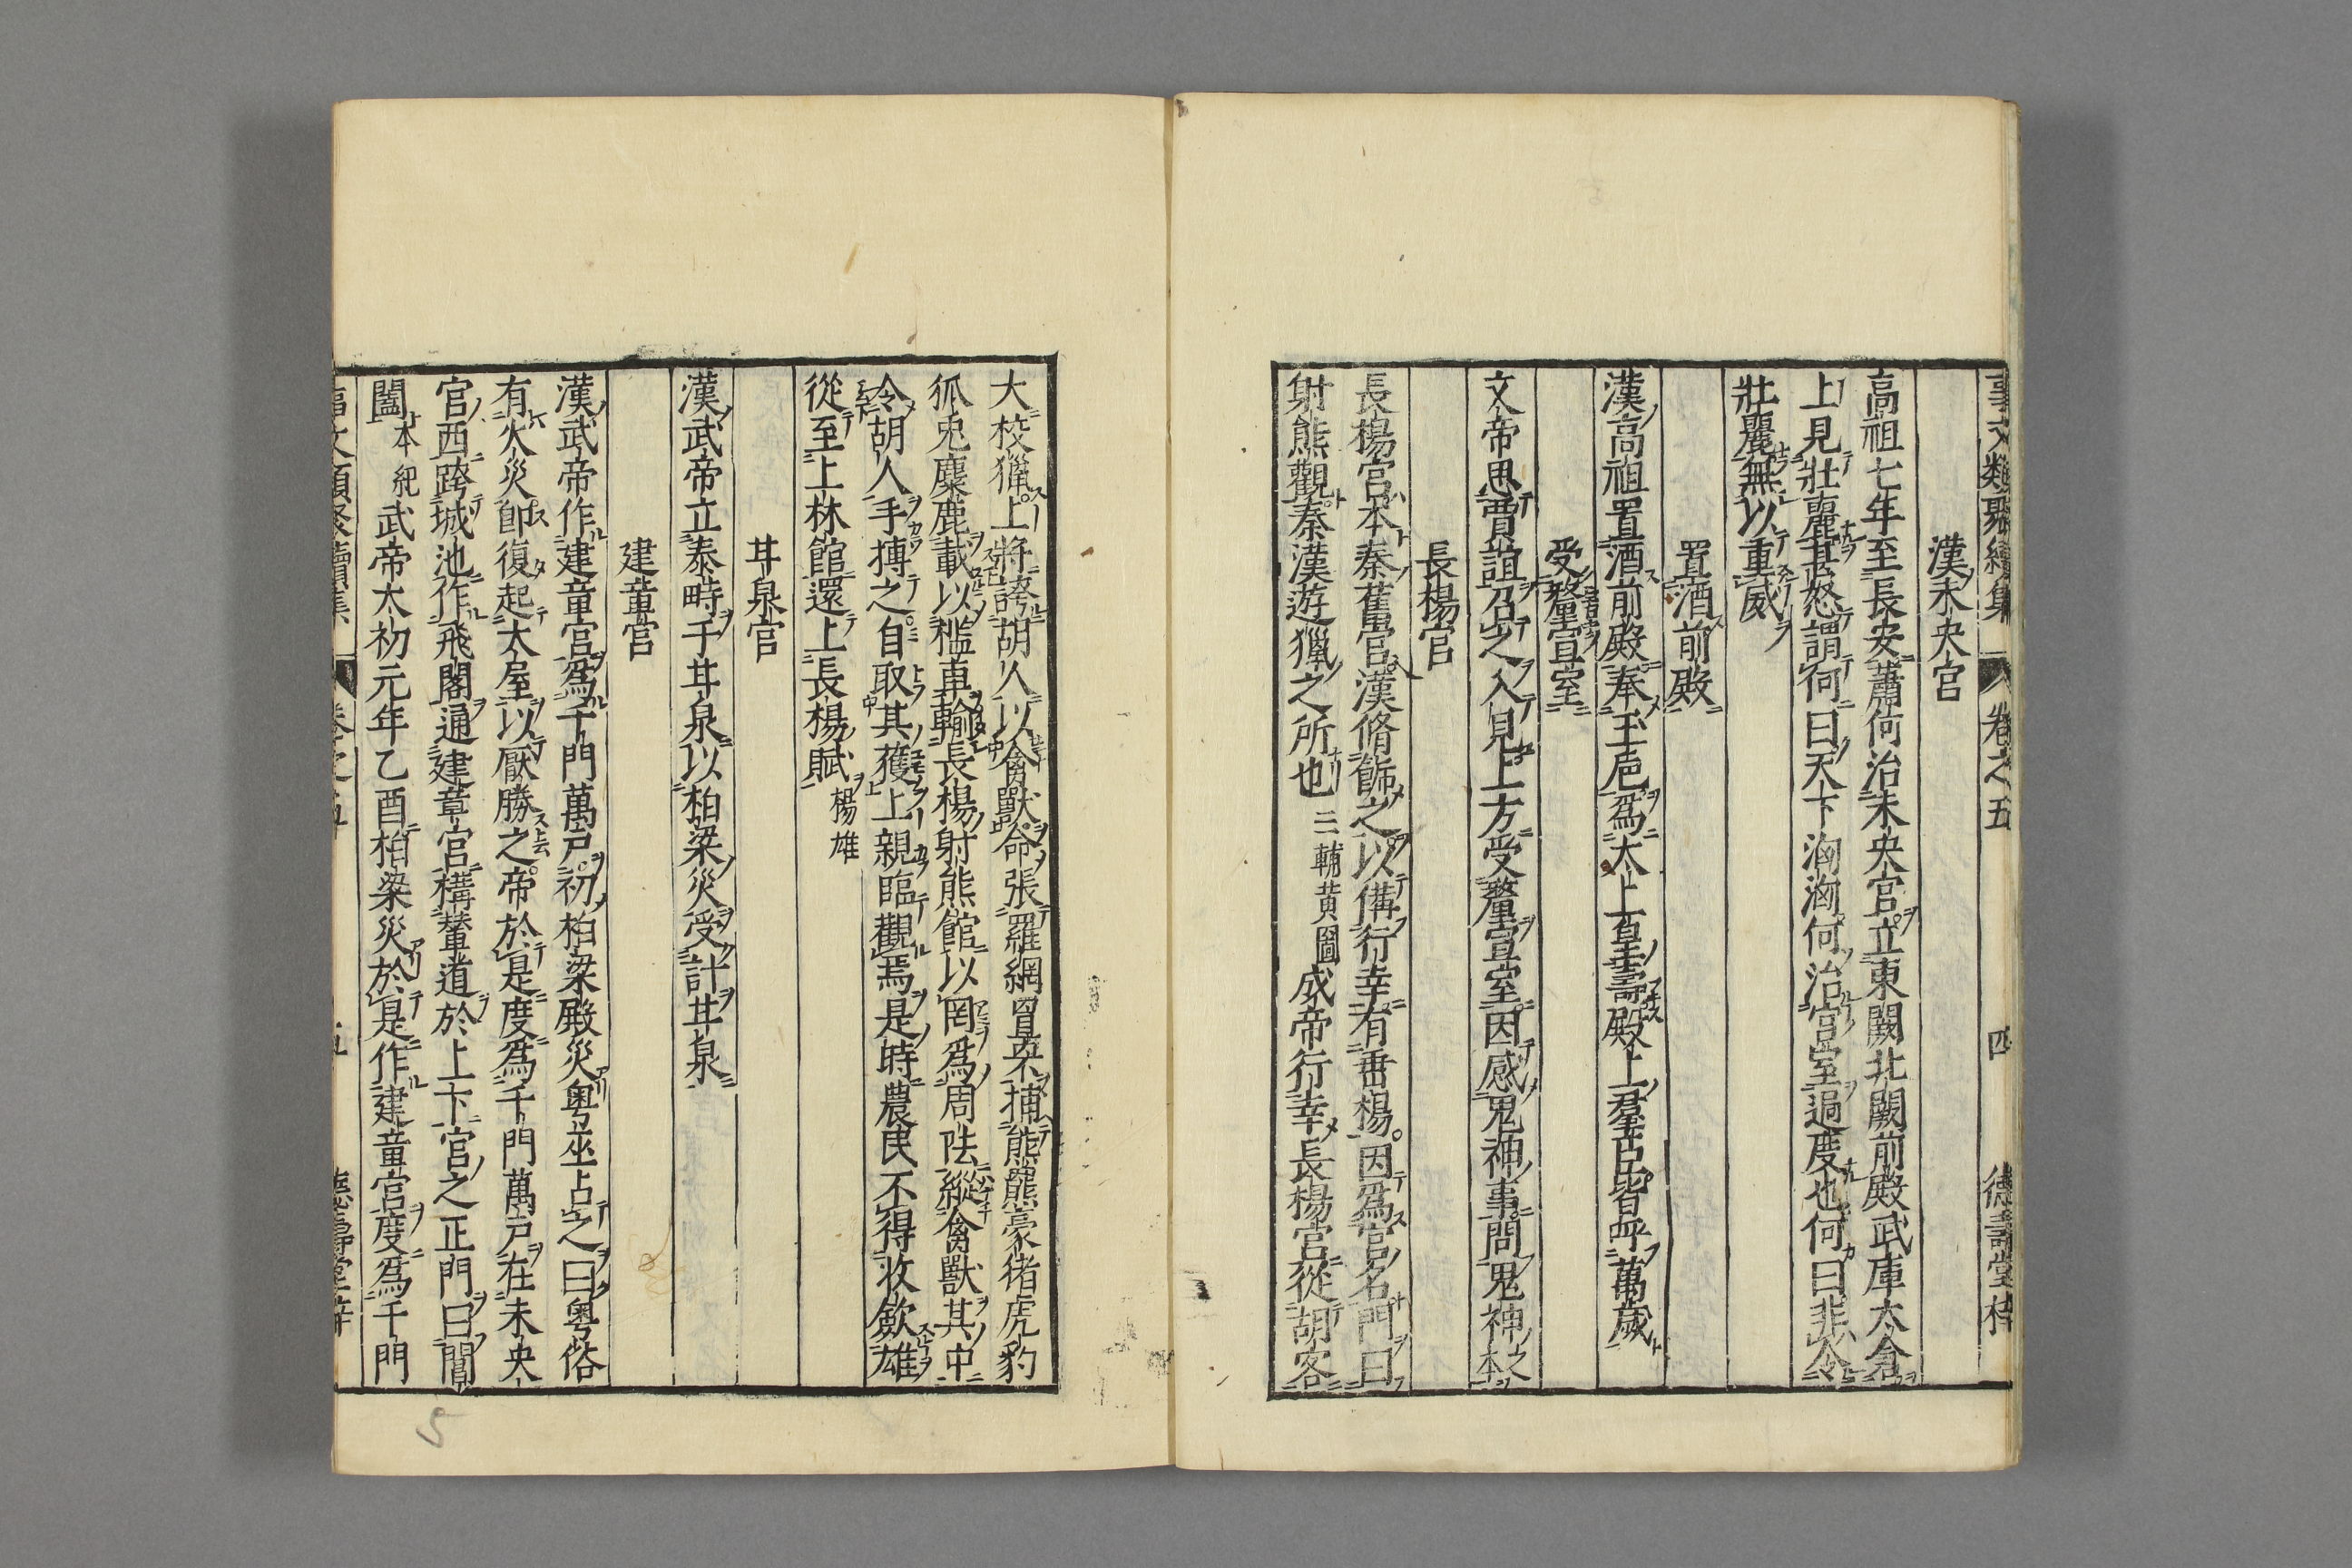 事文類聚續集 卷之五 四 德壽堂梓
漢未央宮
高祖七年至長安蕭何治未央宮立東闕北闕前殿武庫太倉
上見壯麗甚怒謂何曰天下洶洶何治宮室過度也何曰非令
壯麗無以重威
置酒前殿
漢高祖置酒前殿奉玉巵爲太上皇壽殿上羣臣皆呼萬歲
受釐宣室
文帝思賈誼召之入見上方受釐宣室因感鬼神事問鬼神之本
長楊宮
長楊宮本秦舊宮漢脩飾之以備行幸有垂楊因爲宮名門曰
射熊觀秦漢遊獵之所也三輔黃圖成帝行幸長楊宮從胡客
大校獵上將誇胡人以禽獸命張羅網罝罘捕熊羆豪猪虎豹
狐兎麋鹿載以檻車輸長楊射熊館以罔爲周阹縱禽獸其中
令胡人手搏之自取其獲上親臨觀焉是時農民不得收斂雄
從至上林館還上長楊賦楊雄
甘泉宮
漢武帝立泰畤于甘泉以柏梁災受計甘泉
建章宮
漢武帝作建章宮爲千門萬戶初柏梁殿災粵巫占之曰粵俗
有火災卽復起大屋以厭勝之帝於是度爲千門萬戶在未央
宮西跨城池作飛閣通建章宮構輦道於上下宮之正門曰閶
闔本紀武帝太初元年乙酉柏梁災於是作建章宮度爲千門